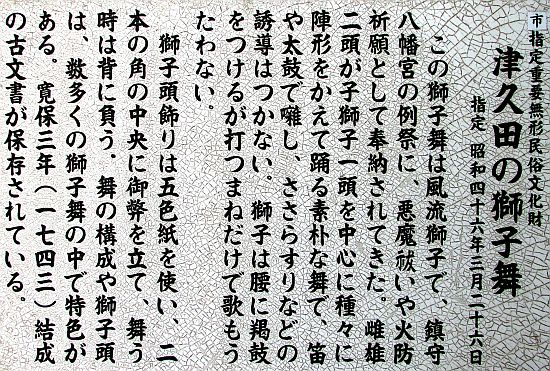 市指定重要無形民俗文化財
津久田の獅子舞
指定 昭和四十六年三月二十六日
この獅子舞は風流獅子で、鎮守
八幡宮の例祭に、悪魔祓いや火防
祈願として奉納されてきた。雌雄
二頭が子獅子一頭を中心に種々に
陣形をかえて踊る素朴な舞で、笛
や太鼓で囃し、ささらすりなどの
誘導はつかない。獅子は腰に羯鼓
をつけるが打つまねだけで歌もう
たわない。
獅子頭飾りは五色紙を使い、二
本の角の中央に御幣を立て、舞う
時は背に負う。舞の構成や獅子頭
は、数多くの獅子舞の中で特色が
ある。寛保三年（一七四三）結成
の古文書が保存されている。